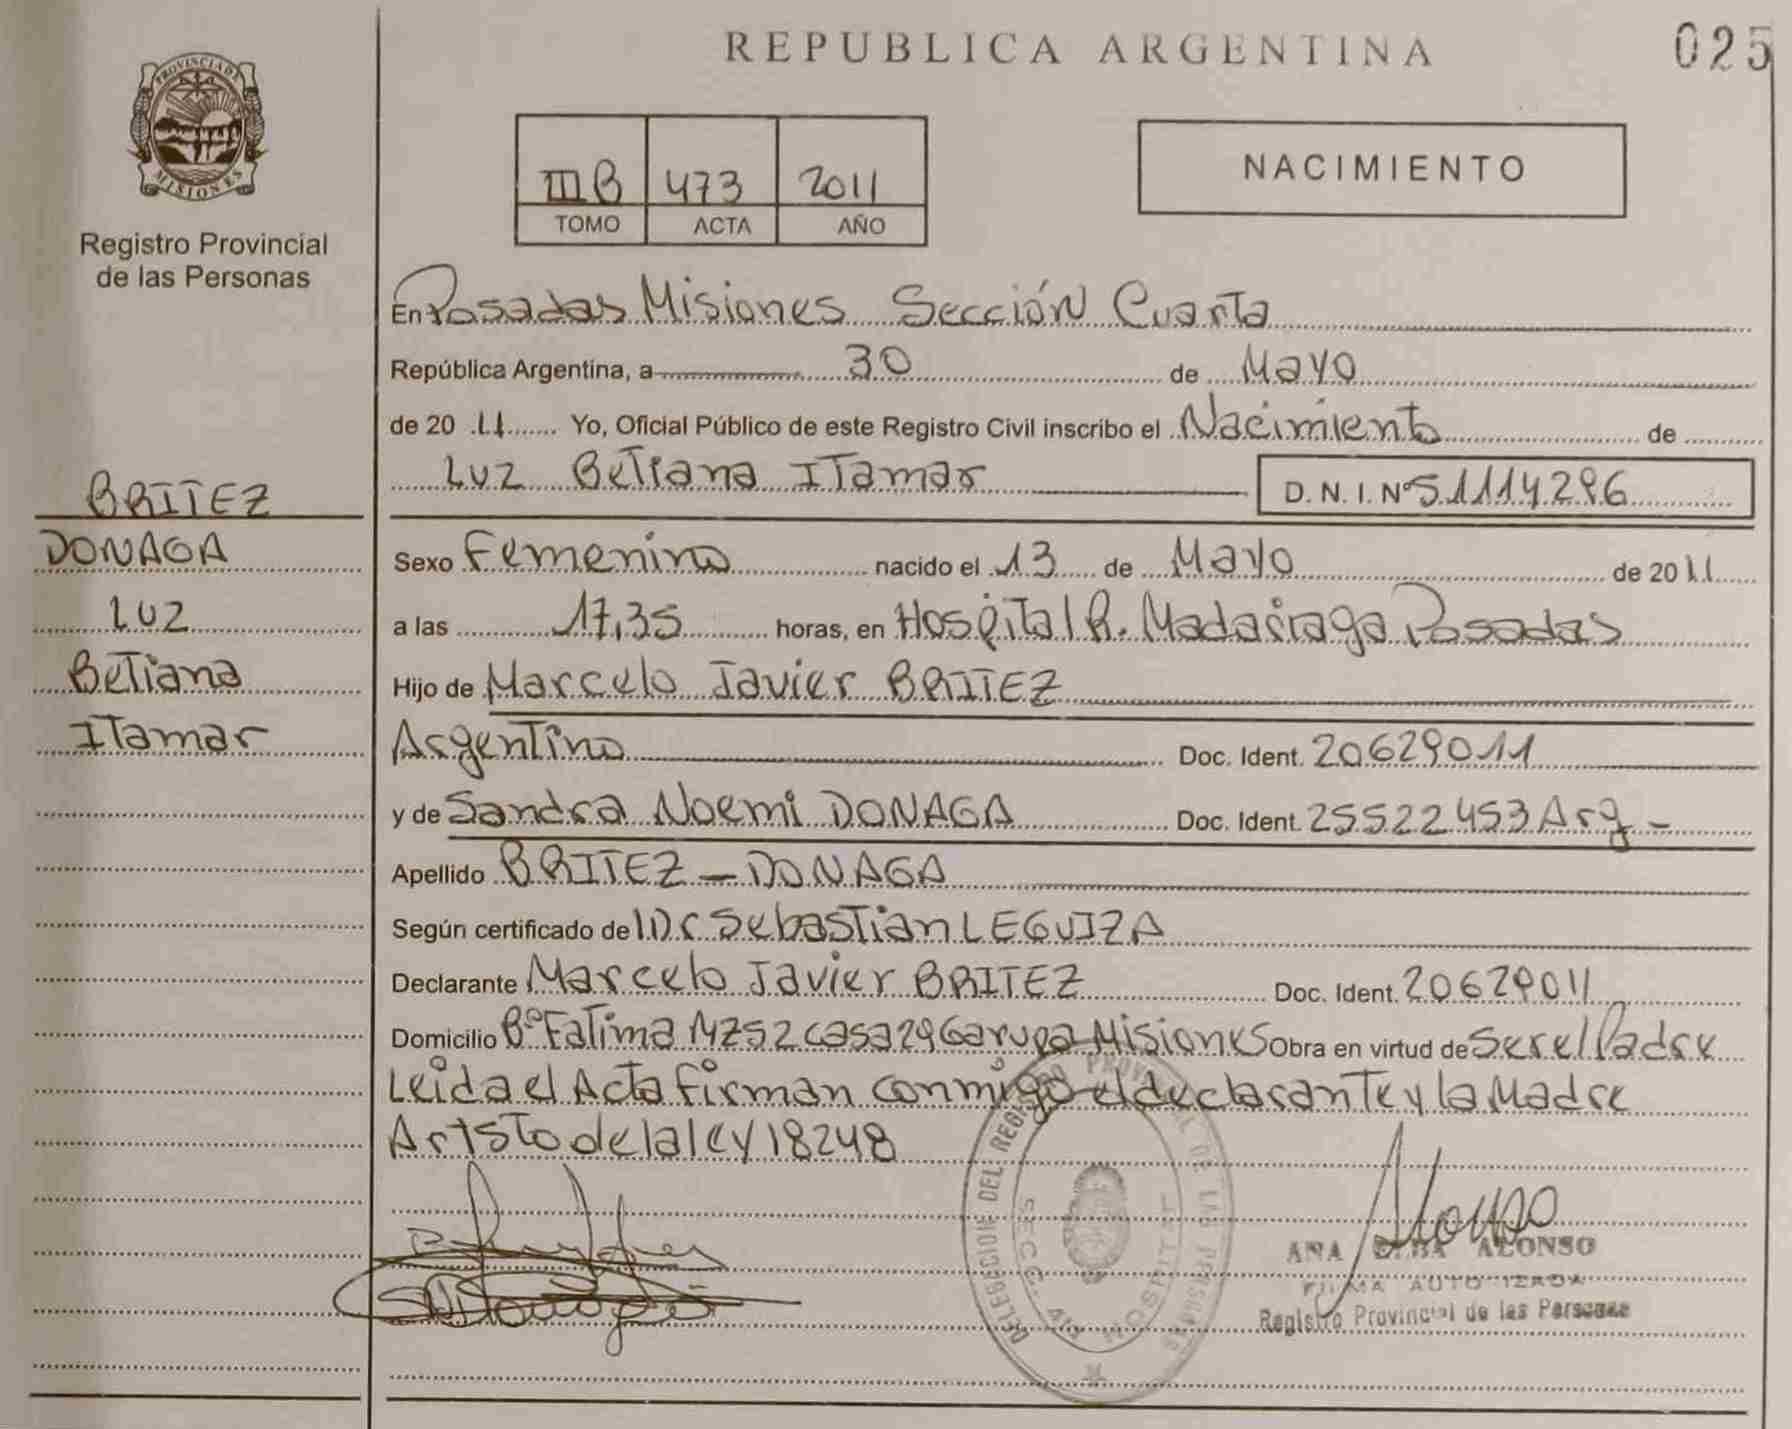 REPUBLICA ARGENTINA
025
PROVINCIA DE
MISIONES
Registro Provincial
de las Personas
III B 473 2011
TOMO ACTA AÑO
NACIMIENTO
En Posadas Misiones Sección Cuarta
República Argentina, a 30 de Mayo
de 20 11 Yo, Oficial Público de este Registro Civil inscribo el Nacimiento de
Luz Betiana Itamar D.N.I. Nº 51114296
BRITEZ
DONAGA
Luz
Betiana
Itamar
Sexo Femenino nacido el 13 de Mayo de 2011
a las 17,35 horas, en Hospital R. Madariaga Posadas
Hijo de Marcelo Javier BRITEZ
Argentino Doc. Ident. 20629011
y de Sandra Noemi DONAGA Doc. Ident. 25522453 Arg -
Apellido BRITEZ - DONAGA
Según certificado de Dr Sebastian LEGUIZA
Declarante Marcelo Javier BRITEZ Doc. Ident. 20629011
Domicilio Bº Fatima MZ52 casa 29 Garupa Misiones Obra en virtud de Ser el Padre
Leida el Acta Firman conmigo el declarante y la Madre
Art 5to de la ley 18248
DELEGACION DEL REGISTRO PROVINCIAL DE LAS PERSONAS
ANA ELBA ALONSO
FIRMA AUTORIZADA
Registro Provincial de las Personas